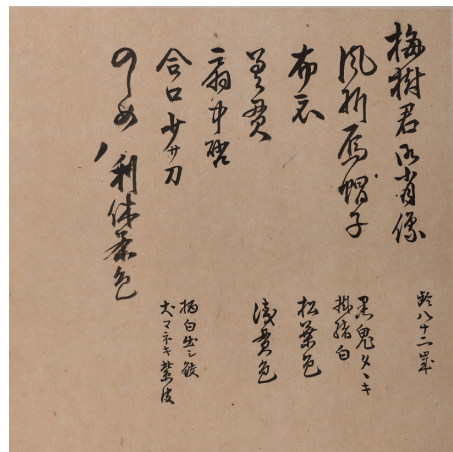 梅樹君御肖像 齢八十二歳
風折烏帽子 黒鬼タヽキ
掛緒白
布衣 松葉色
差貫 浅黄色
扇中啓
合口少サ刀 柄白出シ鮫
犬マネキ紫皮
のしめ 利休茶色